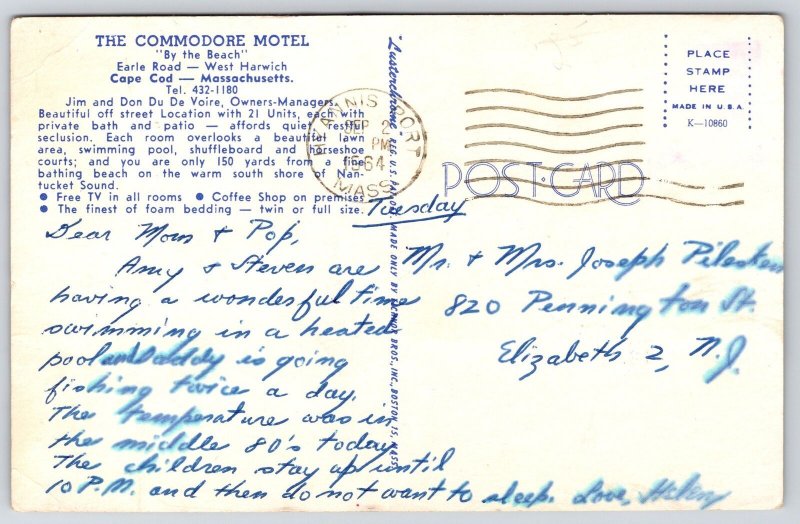 THE COMMODORE MOTEL
"By the Beach"
Earle Road — West Harwich
Cape Cod — Massachusetts.
Tel. 432-1180
Jim and Don Du De Voire, Owners-Managers.
Beautiful off street Location with 21 Units, each with
private bath and patio — affords quiet restful
seclusion. Each room overlooks a beautiful lawn
area, swimming pool, shuffleboard and horseshoe
courts; and you are only 150 yards from a fine
bathing beach on the warm south shore of Nan-
tucket Sound.
● Free TV in all rooms ● Coffee Shop on premises
● The finest of foam bedding — twin or full size.
Tuesday
Dear Mom & Pop,
Amy & Steven are
having a wonderful time
swimming in a heated
pool and Daddy is going
fishing twice a day.
The temperature was in
the middle 80's today
The children stay up until
10 P.M. and then do not want to sleep. Love, Helen
"Lusterchrome" REG. U.S. PAT. OFF. MADE ONLY BY BROS., INC., BOSTON 15, MASS.
HYANNIS PORT
SEP 2
PM
1964
MASS
PLACE
STAMP
HERE
MADE IN U.S.A.
K—10860
POST CARD
Mr. & Mrs. Joseph
820 Pennington St.
Elizabeth 2, N.J.